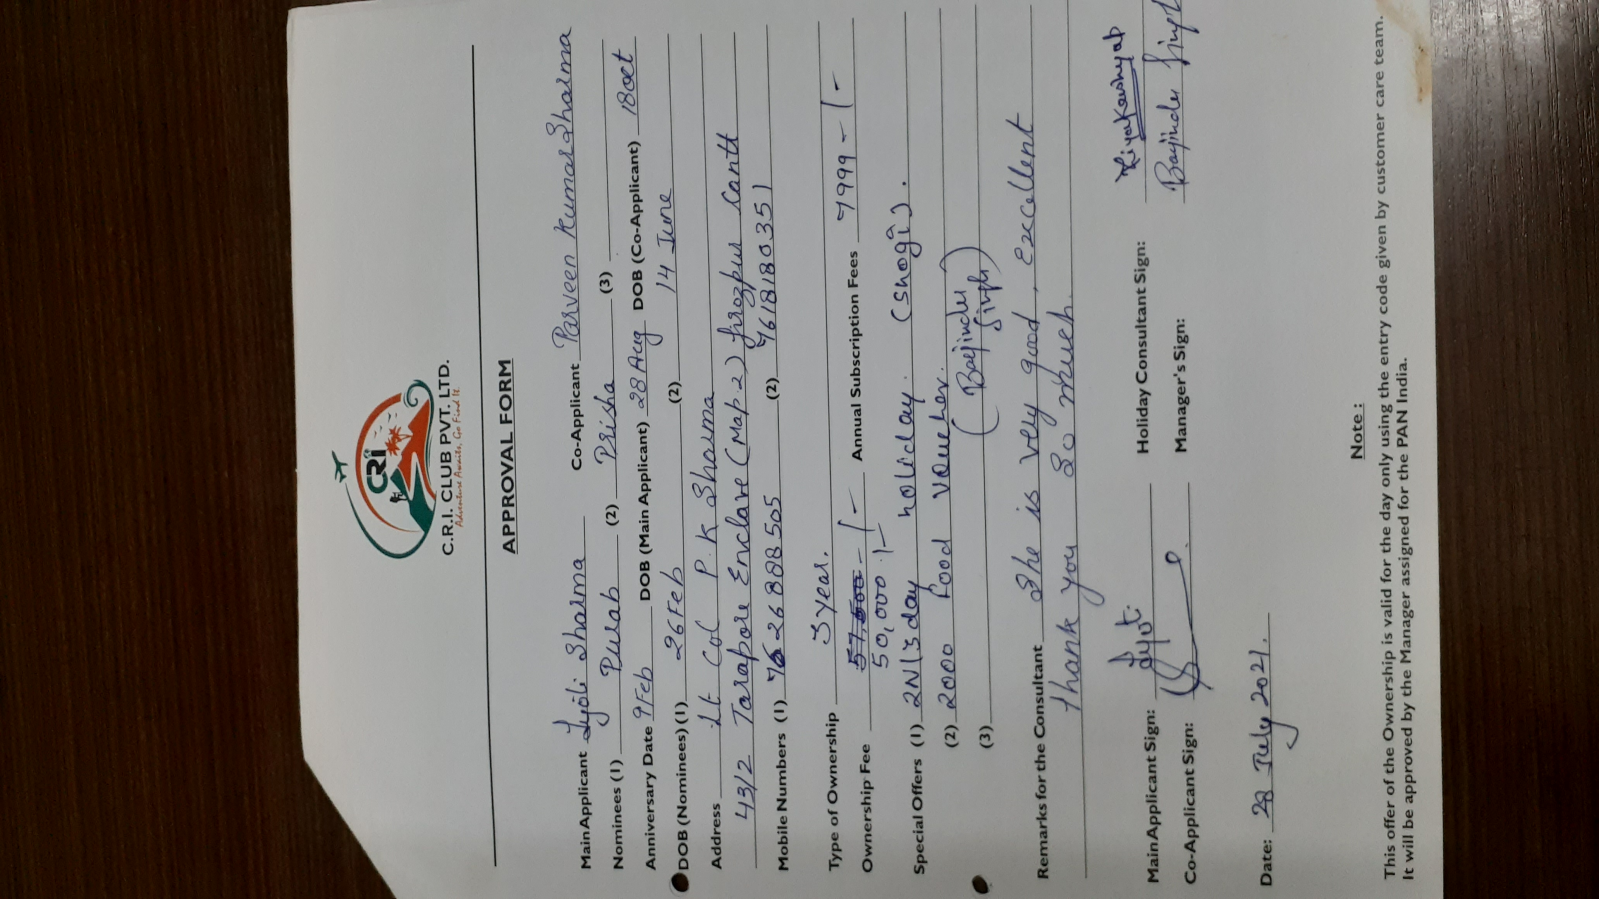 CRI
C.R.I. CLUB PVT. LTD.
Adventure Awaits, Go Find It.
APPROVAL FORM
Main Applicant Jyoti Sharma Co-Applicant Parveen Kumar Sharma
Nominees (1) Purab (2) Prisha (3)
Anniversary Date 9 Feb DOB (Main Applicant) 28 Aug DOB (Co-Applicant) 18 Oct
DOB (Nominees) (1) 26 Feb (2) 14 June
Address Lt Col P.K Sharma
43/2 Tarapore Enclave (Map 2) firozpur Cantt
Mobile Numbers (1) 7626888505 (2) 7618180351
Type of Ownership 3 year.
Ownership Fee 57,500 - /- Annual Subscription Fees 7999 - /-
50,000 /-
Special Offers (1) 2N/3day holiday. (Shogi).
(2) 2000 food voucher.
(3) (Baljinder Singh)
Remarks for the Consultant She is very good, excellent
thank you so much.
Main Applicant Sign: Jyoti Holiday Consultant Sign:
Co-Applicant Sign: Manager's Sign: Baljinder Singh
Date: 28 July 2021.
Note :
This offer of the Ownership is valid for the day only using the entry code given by customer care team.
It will be approved by the Manager assigned for the PAN India.